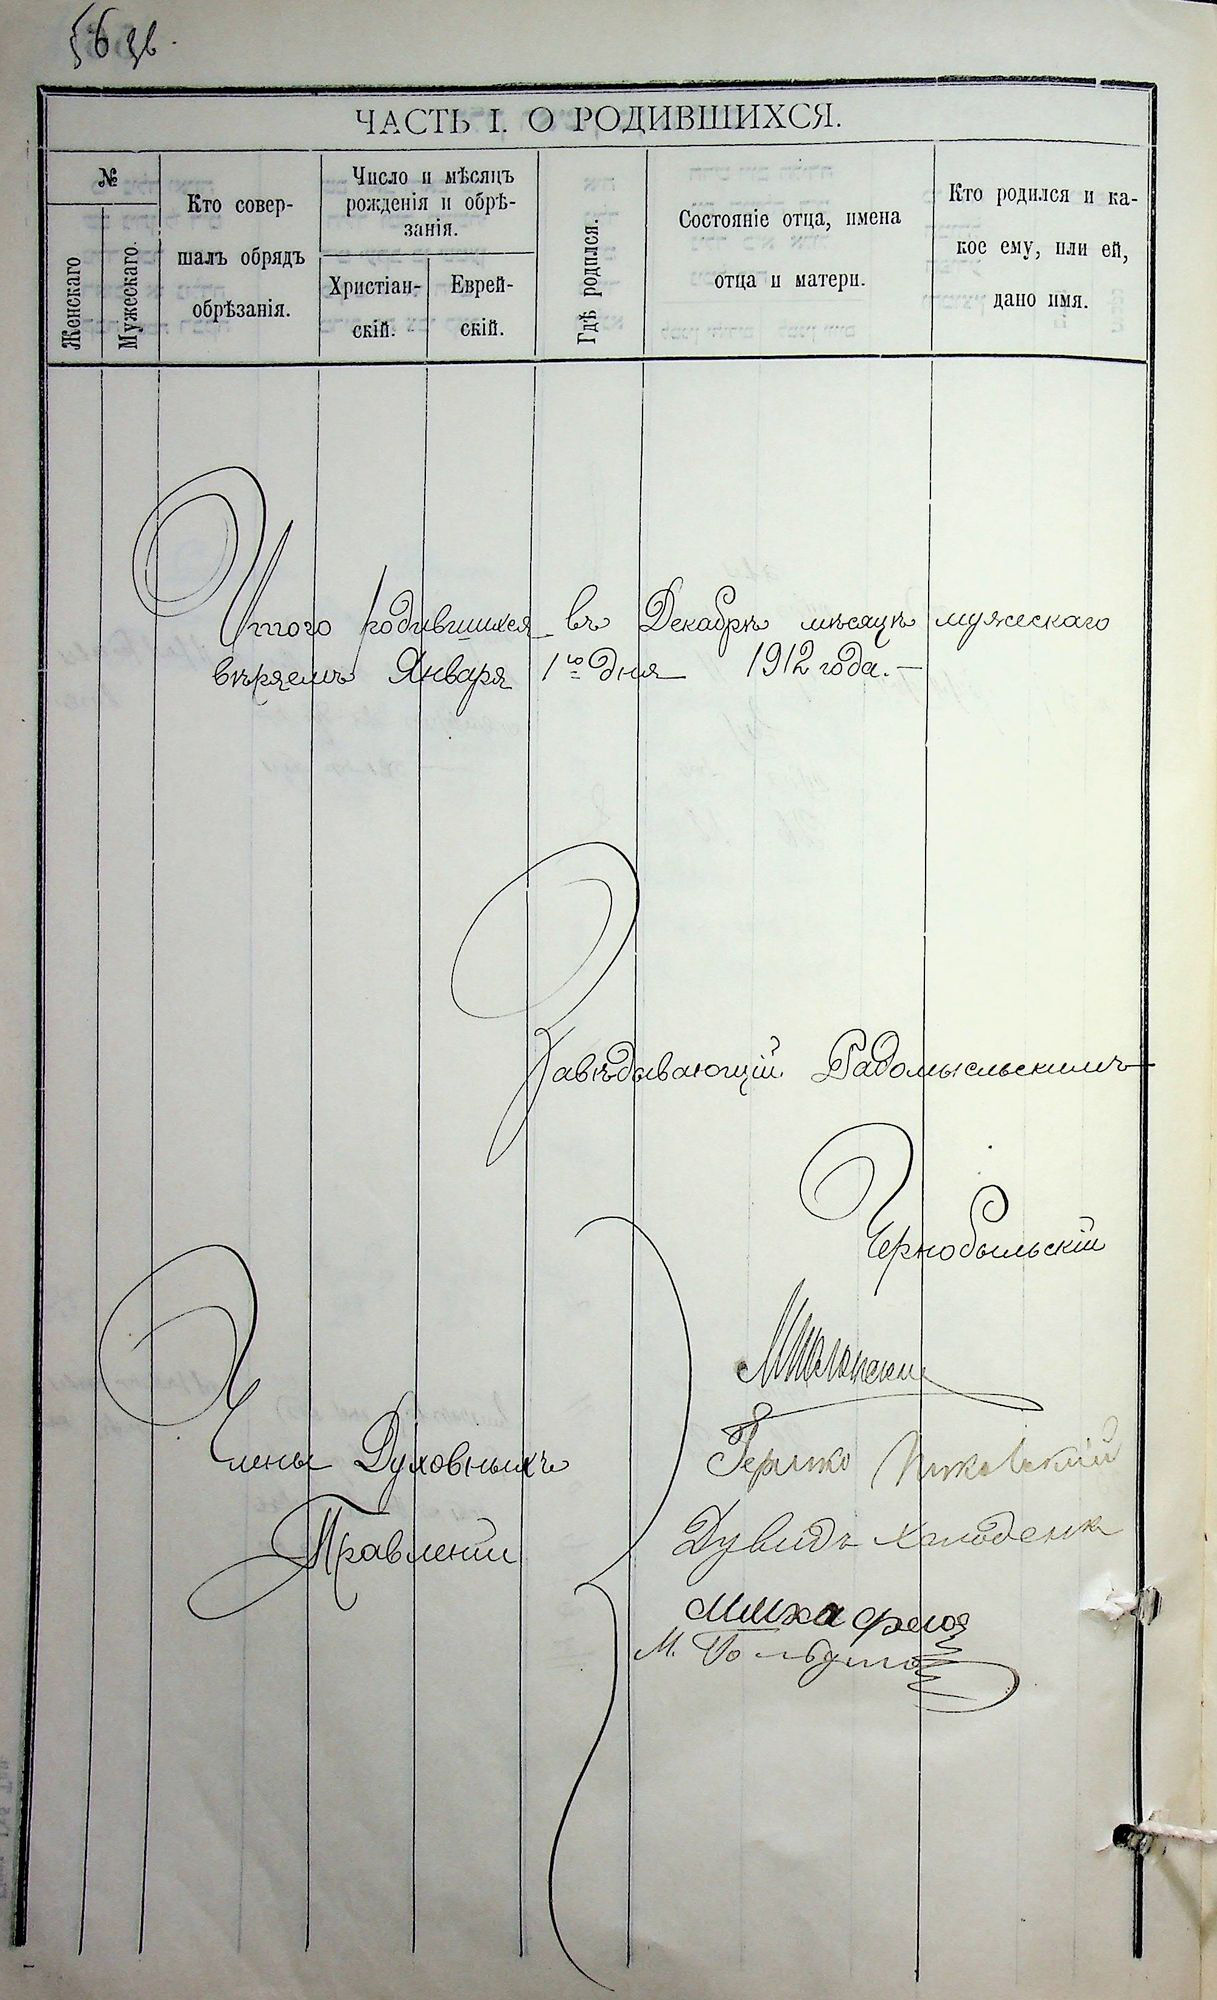 ЧАСТЬ I. О РОДИВШИХСЯ.
№
Женскаго
Мужескаго.
Кто совер-
шалъ обрядъ
обрѣзанія.
Число и мѣсяцъ
рожденія и обрѣ-
занія.
Христіан-
скій.
Еврей-
скій.
Гдѣ родился.
Состояніе отца, имена
отца и матери.
Кто родился и ка-
кое ему, или ей,
дано имя.
Итого родившихся въ Декабрѣ мѣсяцѣ мужескаго
вѣряемъ Января 1го дня 1912 года.—
Завѣдывающій Радомысльскимъ
Чернобыльскій
Члены Духовныхъ
Правленій
Гершко
Дувидъ Халоденко
М.